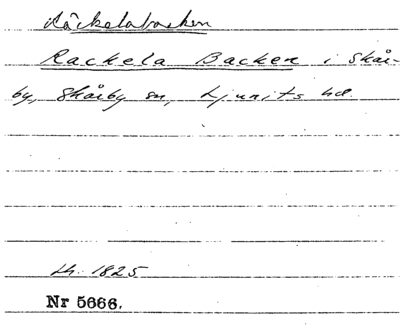 Råckelabacken
Rackela Backen i Skår-
by, Skårby sn, Ljunits hd.
Lh. 1825
Nr 5666.